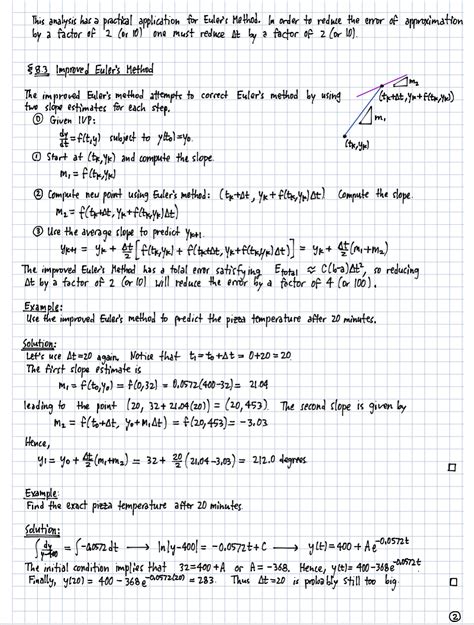 This analysis has a practical application for Euler's Method. In order to reduce the error of approximation
by a factor of 2 (or 10) one must reduce Δt by a factor of 2 (or 10).
§8.3 Improved Euler's Method
The improved Euler's method attempts to correct Euler's method by using
two slope estimates for each step.
⓪ Given IVP:
dy/dt = f(t,y) subject to y(t₀)=y₀.
① Start at (tₖ,yₖ) and compute the slope.
m₁ = f(tₖ,yₖ)
② Compute new point using Euler's method: (tₖ+Δt, yₖ+f(tₖ,yₖ)Δt) Compute the slope.
m₂ = f(tₖ+Δt, yₖ+f(tₖ,yₖ)Δt)
③ Use the average slope to predict yₖ₊₁.
yₖ₊₁ = yₖ + Δt/2 [f(tₖ,yₖ) + f(tₖ+Δt, yₖ+f(tₖ,yₖ)Δt)] = yₖ + Δt/2 (m₁+m₂)
m₂
(tₖ+Δt, yₖ+f(tₖ,yₖ))
m₁
(tₖ,yₖ)
The improved Euler's Method has a total error satisfying E_total ≈ C(b-a)Δt², so reducing
Δt by a factor of 2 (or 10) will reduce the error by a factor of 4 (or 100).
Example:
Use the improved Euler's method to predict the pizza temperature after 20 minutes.
Solution:
Let's use Δt=20 again. Notice that t₁ = t₀+Δt = 0+20 = 20
The first slope estimate is
m₁ = f(t₀,y₀) = f(0,32) = 0.0572(400-32) = 21.04
leading to the point (20, 32+21.04(20)) = (20, 453). The second slope is given by
m₂ = f(t₀+Δt, y₀+m₁Δt) = f(20,453) = -3.03
Hence,
y₁ = y₀ + Δt/2 (m₁+m₂) = 32 + 20/2 (21.04-3.03) = 212.0 degrees
Example:
Find the exact pizza temperature after 20 minutes.
Solution:
∫ dy/y-400 = ∫-0.0572 dt ⟶ ln|y-400| = -0.0572t+C ⟶ y(t) = 400+Ae^-0.0572t
The initial condition implies that 32=400+A or A=-368. Hence, y(t)=400-368e^-0.0572t
Finally, y(20) = 400-368e^-0.0572(20) = 283. Thus Δt=20 is probably still too big.
②